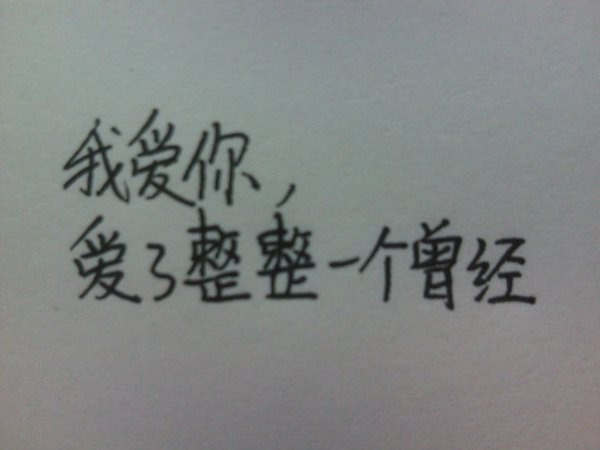 我爱你,
爱了整整一个曾经